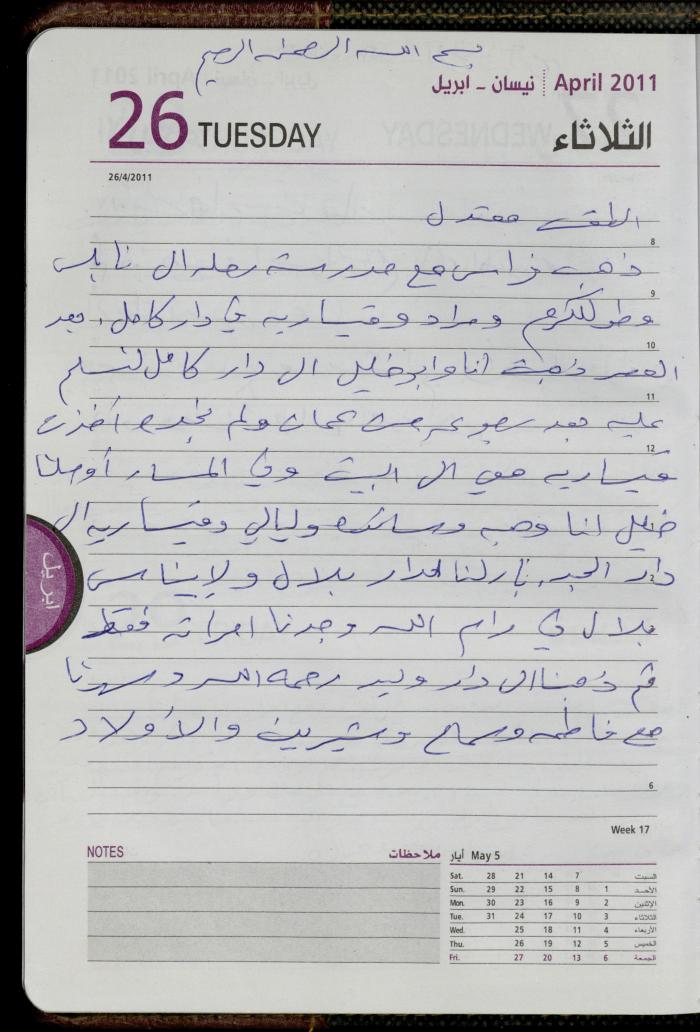 بسم الله الرحمن الرحيم
April 2011 نيسان - ابريل
26 TUESDAY الثلاثاء
26/4/2011
الطقس معتدل
8
ذهب فراس مع مدرسته رحله ال نابلس
9
وطولكرم ومراد وقيساريه في دار كامل، بعد
10
العصر ذهبت أنا وابو خليل ال دار كامل لنسلم
11
عليه بعد رجوعه من عمان ولم نجده أخذت
12
قيساريه معي ال البيت وفي المساء أوصلنا
خليل انا وهبه وسائده وليالي وقيساريه ال
دار الجد، نزلنا لدار بلال ولايناس
بلال في رام الله وجدنا امراته فقط
ثم ذهبنا ال دار وليد رحمه الله وسهرنا
مع فاطمه وسماح وشيرين والأولاد
6
Week 17
ابريل
NOTES ملاحظات
May 5 أيار
Sat. 28 21 14 7 السبت
Sun. 29 22 15 8 1 الأحد
Mon. 30 23 16 9 2 الإثنين
Tue. 31 24 17 10 3 الثلاثاء
Wed. 25 18 11 4 الأربعاء
Thu. 26 19 12 5 الخميس
Fri. 27 20 13 6 الجمعة